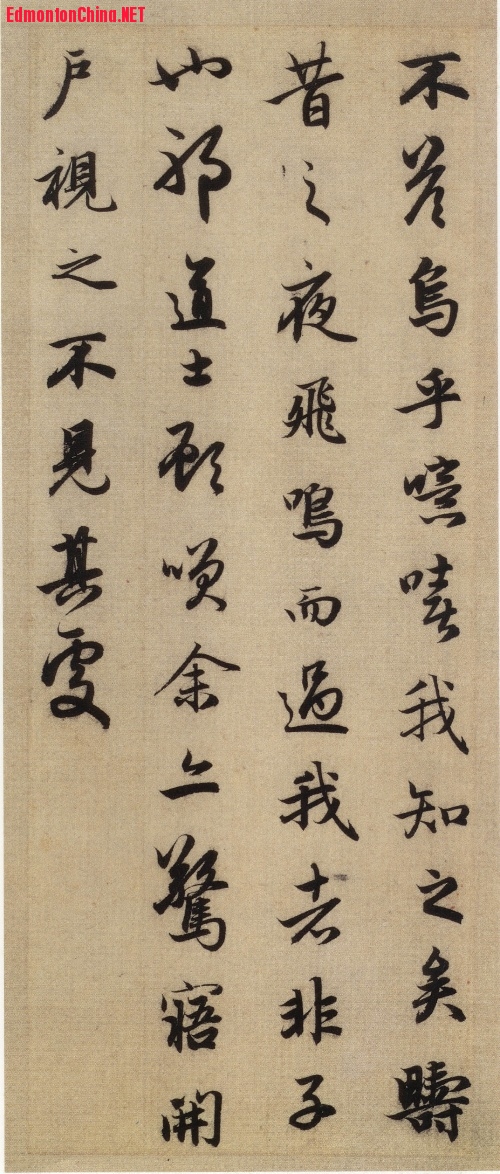 EdmontonChina.NET
不荅烏乎噫嘻我知之矣疇
昔之夜飛鳴而過我者非子
也邪道士顧咲余亦驚寤開
戶視之不見其處